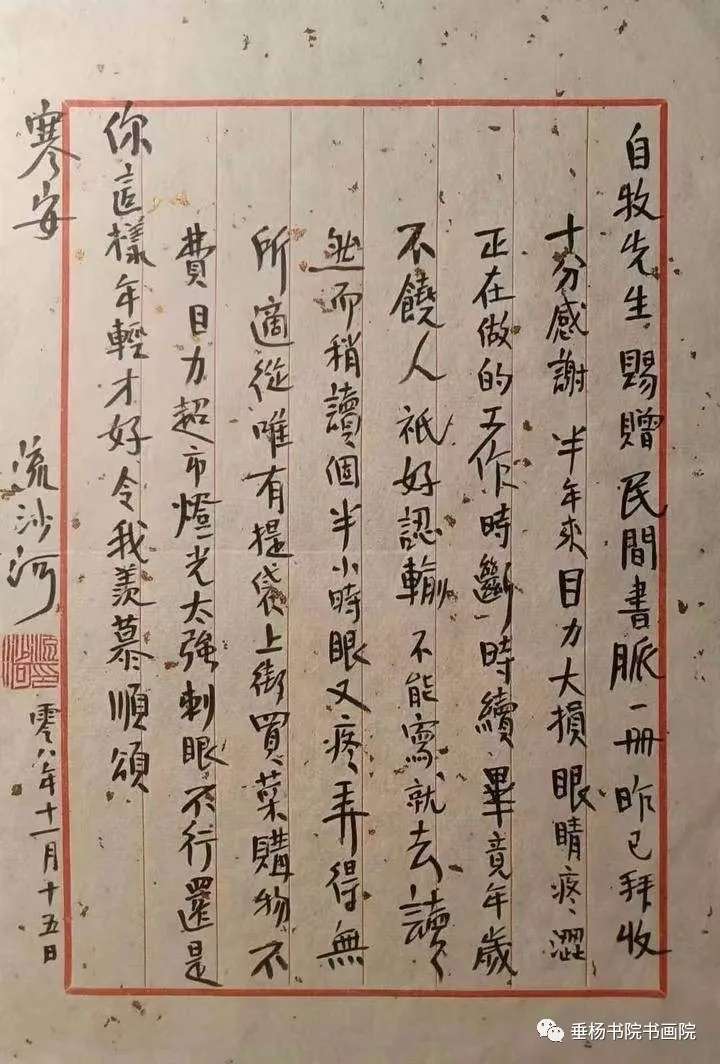 自牧先生賜贈民間書脈一冊昨已拜收
十分感謝半年來目力大損眼睛疼澀
正在做的工作時斷時續畢竟年歲
不饒人祇好認輸不能寫就去讀
然而稍讀個半小時眼又疼弄得無
所適從唯有提袋上街買菜購物不
費目力超市燈光太強刺眼不行還是
你這樣年輕才好令我羨慕順頌
寒安
流沙河
零八年十一月十五日
垂杨书院书画院